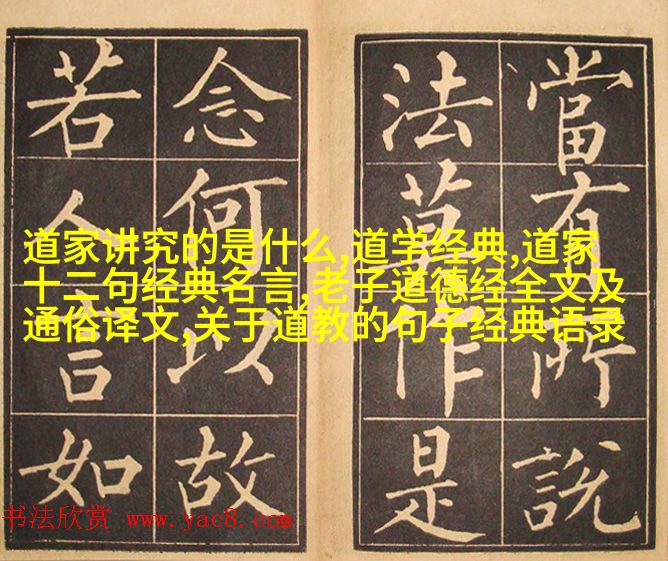 當有所說
法莫作是
念何以故
若人言如
道家讲究的是什么,道学经典,道家
十二句经典名言,老子道德经全文及
通俗译文,关于道教的句子经典语录
书法欣赏 www.yac8.com